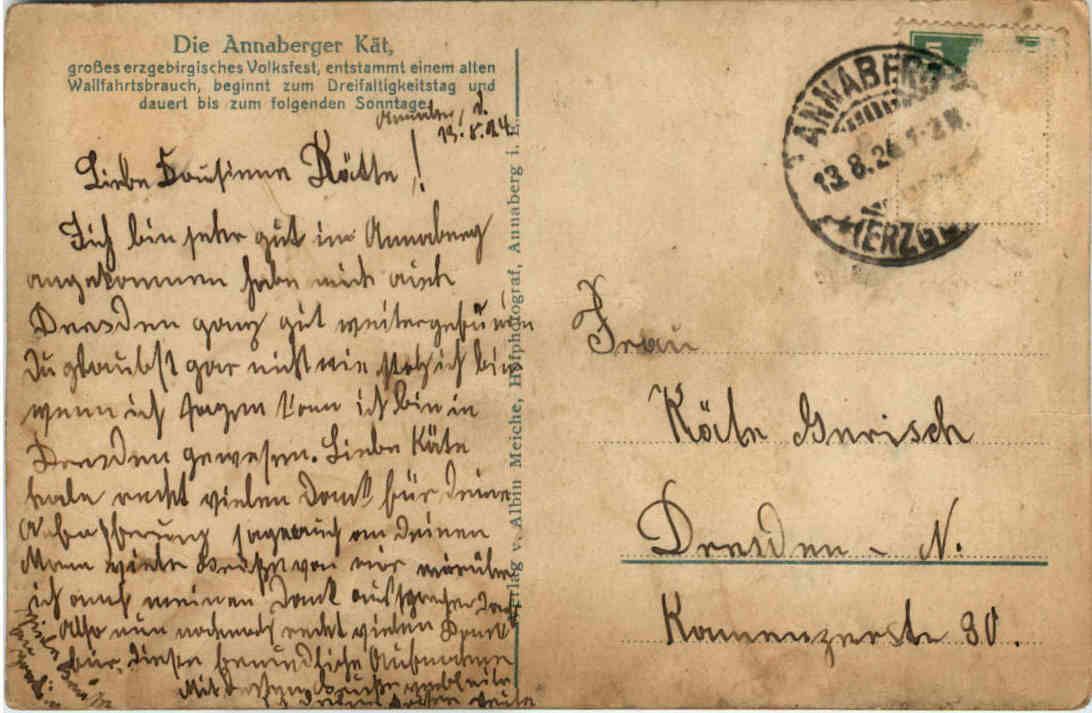 Die Annaberger Kät,
großes erzgebirgisches Volksfest, entstammt einem alten
Wallfahrtsbrauch, beginnt zum Dreifaltigkeitstag und
dauert bis zum folgenden Sonntage.
13.8.24.
Liebe Kätte!
Ich bin sehr gut in Annaberg
angekommen habe mich auch
Dresden ganz gut
Du glaubst gar nicht wie stolz ich bin
wenn ich sagen kann ich bin in
Dresden gewesen. Liebe Käte
habe recht vielen Dank für Deine
sage auch an Deinen
Mann viele Grüße von mir
ich auch meinen Dank
Also nun nochmals recht vielen Dank
für diese freundliche Aufnahme
Mit
Verlag v. Albin Meiche, Hofphotograf, Annaberg i. E.
ANNABERG
13.8.24 1-2N.
(ERZGEB.
Frau
Käte Gerisch
Dresden - N.
Kamenzerste 30.